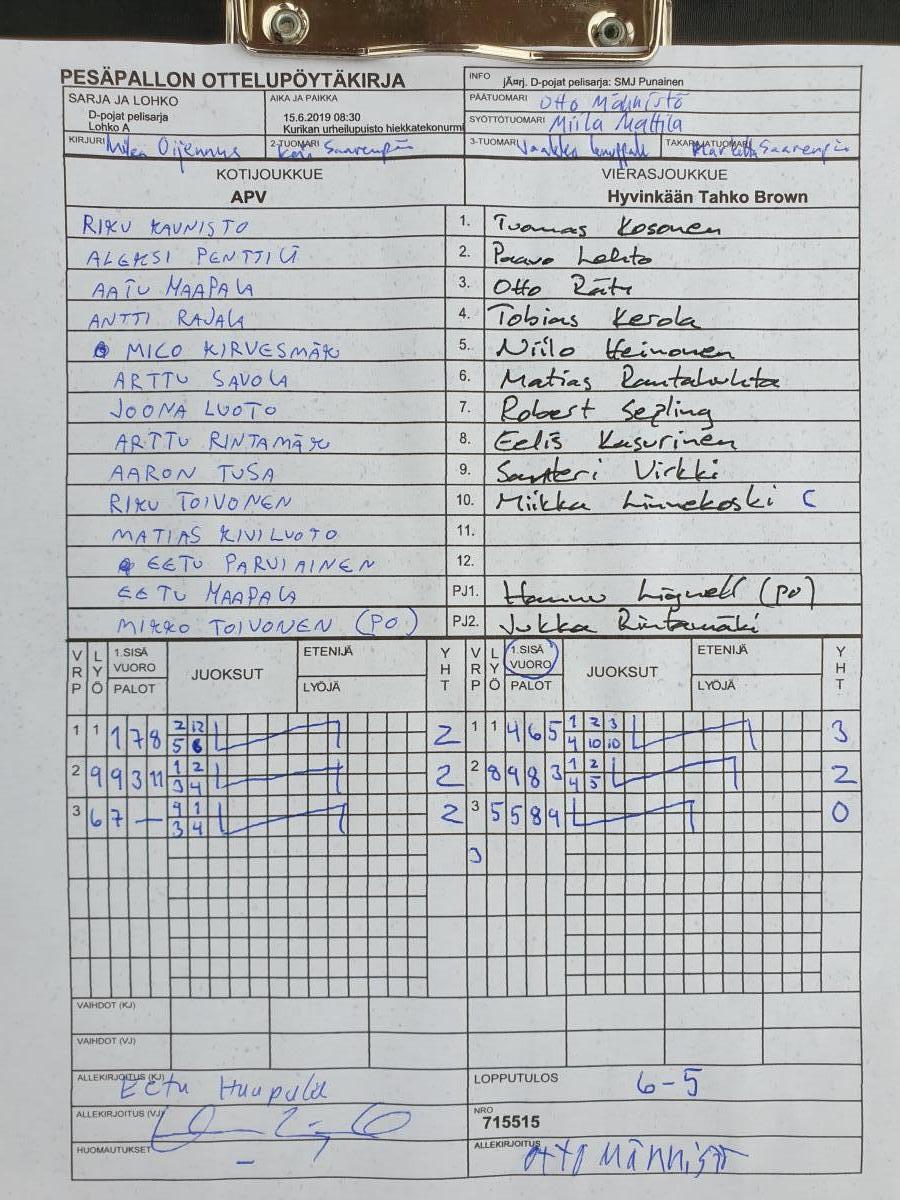 PESÄPALLON OTTELUPÖYTÄKIRJA
INFO jÃ¤rj. D-pojat pelisarja: SMJ Punainen
SARJA JA LOHKO
D-pojat pelisarja
Lohko A
AIKA JA PAIKKA
15.6.2019 08:30
Kurikan urheilupuisto hiekkatekonurmi
PÄÄTUOMARI Otto Männistö
SYÖTTÖTUOMARI Miila Mattila
KIRJURI
2-TUOMARI Saarenpää
3-TUOMARI
TAKARAJATUOMARI Saarenpää
KOTIJOUKKUE
APV
VIERASJOUKKUE
Hyvinkään Tahko Brown
RIKU KAUNISTO 1. Tuomas Kosonen
ALEKSI PENTTILÄ 2. Paavo Lehto
AATU MAAPALA 3. Otto Räty
ANTTI RAJALA 4. Tobias Kerola
MICO KIRVESMÄKI 5. Niilo Heinonen
ARTTU SAVOLA 6. Matias Rantahuhta
JOONA LUOTO 7. Robert Sepling
ARTTU RINTAMÄKI 8. Eelis Kasurinen
AARON TUSA 9. Santeri Virkki
RIKU TOIVONEN 10. Miikka Linnekoski C
MATIAS KIVILUOTO 11.
EETU PARVIAINEN 12.
EETU MAAPALA PJ1. Hannu Lignell (PO)
MIKKO TOIVONEN (PO) PJ2. Jukka Rintamäki
VRP LYÖ 1.SISÄ VUORO PALOT JUOKSUT ETENIJÄ LYÖJÄ YHT VRP LYÖ 1.SISÄ VUORO PALOT JUOKSUT ETENIJÄ LYÖJÄ YHT
1 1 1 7 8 2 12 2 1 1 4 6 5 1 2 3 3
5 6 4 10 10
2 9 9 3 11 1 2 2 2 8 9 8 3 1 2 2
3 4 4 5
3 6 7 – 9 1 2 3 5 5 8 9 0
3 4
3
VAIHDOT (KJ)
VAIHDOT (VJ)
ALLEKIRJOITUS (KJ) Eetu Maapala
LOPPUTULOS 6-5
ALLEKIRJOITUS (VJ)
NRO
715515
HUOMAUTUKSET –
ALLEKIRJOITUS Otto Männistö